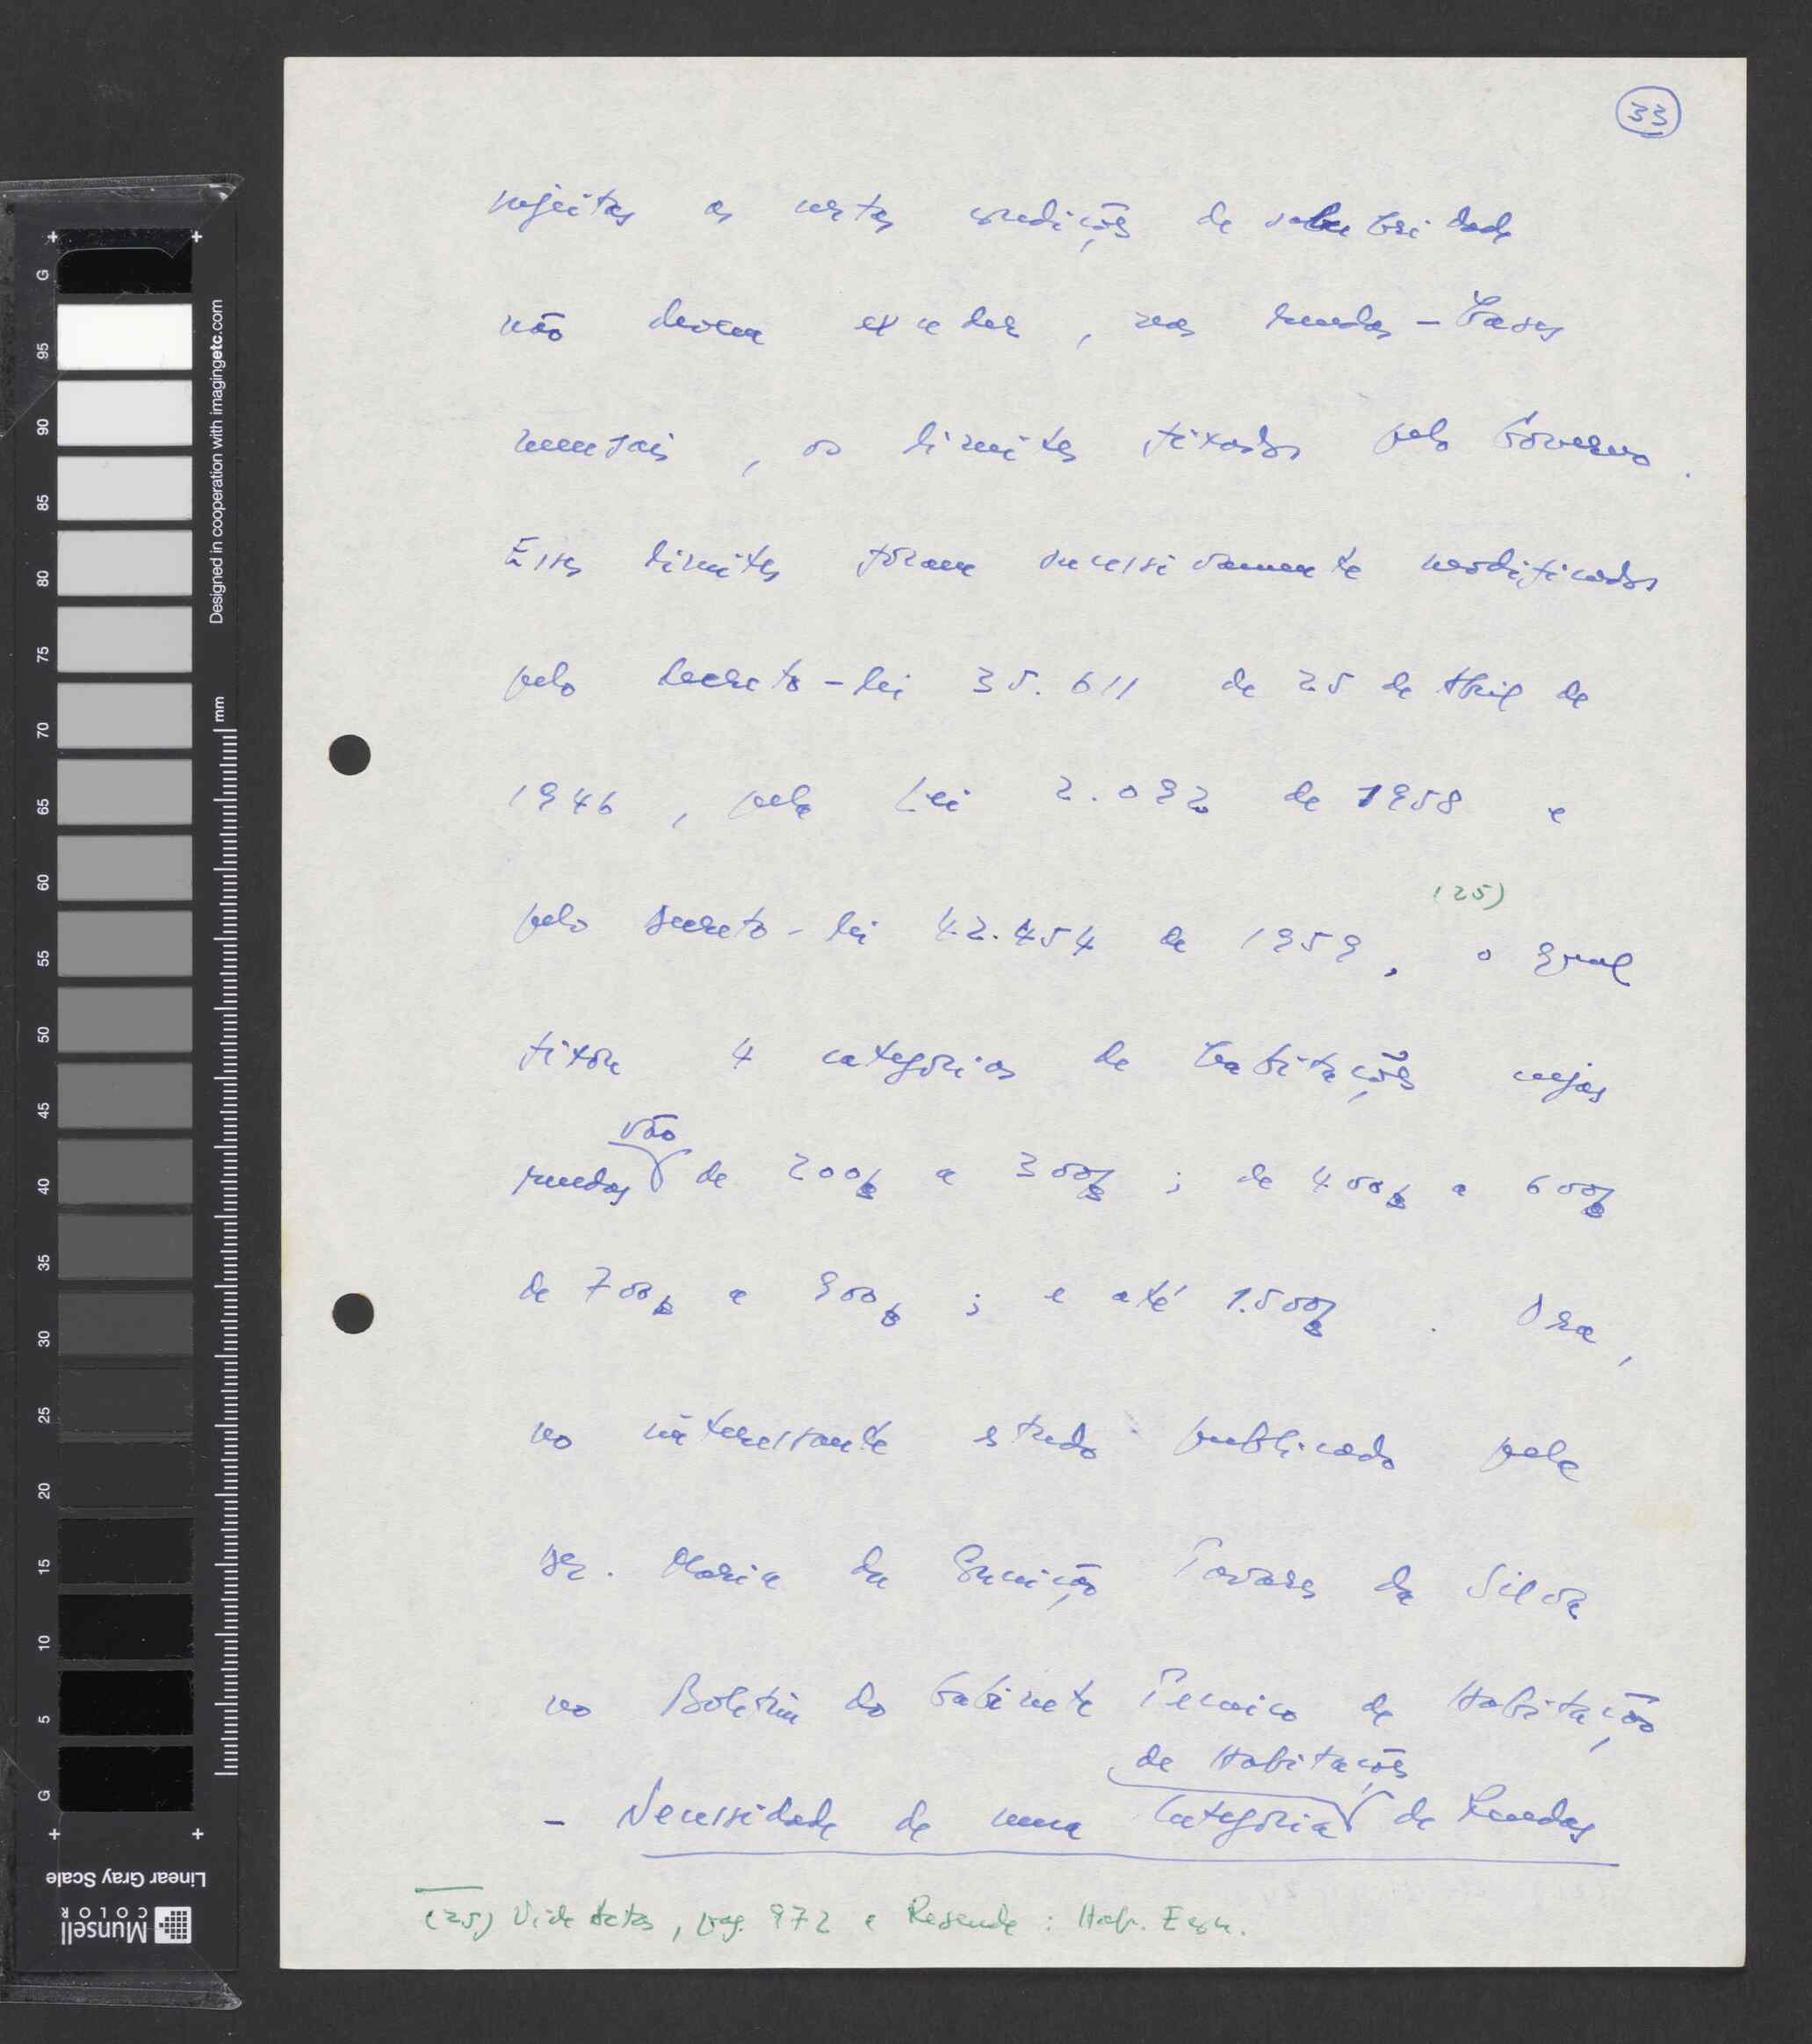 33
sujeitas as certas condições de salubridade
não devem exceder, nas rendas-bases
mensais, os limites fixados pelo Governo.
Esses limites foram sucessivamente modificados
pelo Decreto-lei 35.611 de 25 de Abril de
1946, pela Lei 2.092 de 1958 e
(25)
pelo Decreto-lei 42.454 de 1959, o qual
fixou 4 categorias de habitações cujas
vão
rendas de 200$ a 300$; de 400$ a 600$
de 700$ a 900$; e até 1.500$. Ora,
no interessante estudo publicado pela
Dr. Maria da Tavares da Silva
no Boletim do Gabinete Tecnico de Habitação
de Habitações
- Necessidade de uma Categoria de Rendas
(25) Vide Actas, pag. 972 e Resende: Hab. Econ.
G 95 90 85 80 75 70 65 60 55 50 45 40 35 30 25 20 15 10 5 G
Designed in cooperation with imagingetc.com
mm
Linear Gray Scale
Munsell
COLOR